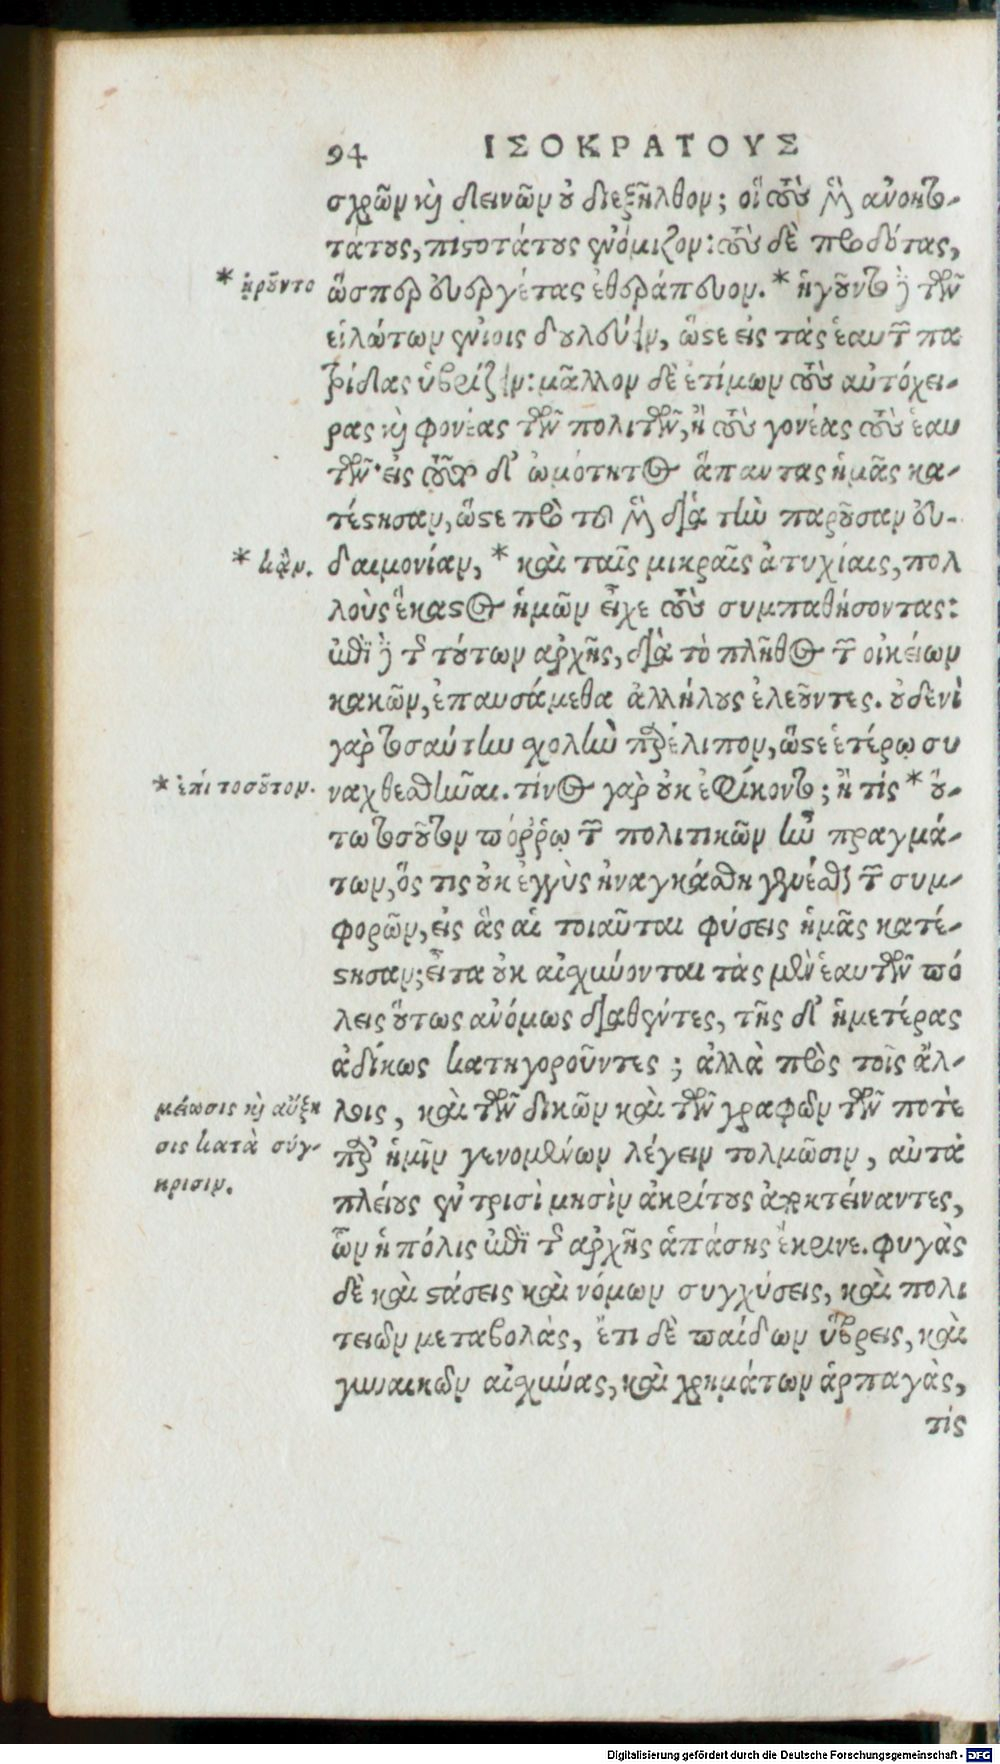 94 ΙΣΟΚΡΑΤΟΥΣ
σχρῶν καὶ δεινῶν οὐ διεξῆλθον; οἳ τοὺς μὲν ἀνοητο-
τάτους, πιστοτάτους ἐνόμιζον: τοὺς δὲ προδότας,
* ᾑροῦντο
ὥσπερ εὐεργέτας ἐθεράπευον. * ἡγοῦντο δὲ τῶν
εἱλώτων ἐνίοις δουλεύειν, ὥστε εἰς τὰς ἑαυτῶν πα
τρίδας ὑβρίζειν: μᾶλλον δὲ ἐτίμων τοὺς αὐτόχει-
ρας καὶ φονέας τῶν πολιτῶν, ἢ τοὺς γονέας τοὺς ἑαυ
τῶν· εἰς τοῦτο δ' ὠμότητος ἅπαντας ἡμᾶς κα-
τέστησαν, ὥστε πρὸ τοῦ μὲν διὰ τὴν παροῦσαν εὐ-
* κἂν.
δαιμονίαν, * καὶ ταῖς μικραῖς ἀτυχίαις, πολ
λοὺς ἕκαστος ἡμῶν εἶχε τοὺς συμπαθήσοντας:
ἐπὶ δὲ τῆς τούτων ἀρχῆς, διὰ τὸ πλῆθος τῶν οἰκείων
κακῶν, ἐπαυσάμεθα ἀλλήλους ἐλεοῦντες. οὐδενὶ
γὰρ τοσαύτην σχολὴν παρέλιπον, ὥστε ἑτέρῳ συ
* ἐπὶ τοσοῦτον.
ναχθεσθῆναι. τίνος γὰρ οὐκ ἐφίκοντο; ἢ τίς * οὕ-
τω τοσοῦτον πόρρω τῶν πολιτικῶν ἦν πραγμά-
των, ὅς τις οὐκ ἐγγὺς ἠναγκάσθη γενέσθαι τῶν συμ-
φορῶν, εἰς ἃς αἱ τοιαῦται φύσεις ἡμᾶς κατέ-
στησαν; εἶτα οὐκ αἰσχύνονται τὰς μὲν ἑαυτῶν πό
λεις οὕτως ἀνόμως διαθέντες, τῆς δ' ἡμετέρας
ἀδίκως κατηγοροῦντες; ἀλλὰ πρὸς τοῖς ἄλ-
μείωσις καὶ αὔξη
σις κατὰ σύγ-
κρισιν.
λοις, καὶ τῶν δικῶν καὶ τῶν γραφῶν τῶν ποτὲ
παρ' ἡμῖν γενομένων λέγειν τολμῶσιν, αὐτὰ
πλείους ἐν τρισὶ μησὶν ἀκρίτους ἀποκτείναντες,
ὧν ἡ πόλις ἐπὶ τῆς ἀρχῆς ἁπάσης ἔκρινε. φυγὰς
δὲ καὶ στάσεις καὶ νόμων συγχύσεις, καὶ πολι
τειῶν μεταβολὰς, ἔτι δὲ παίδων ὕβρεις, καὶ
γυναικῶν αἰσχύνας, καὶ χρημάτων ἁρπαγὰς,
τίς
Digitalisierung gefördert durch die Deutsche Forschungsgemeinschaft - DFG